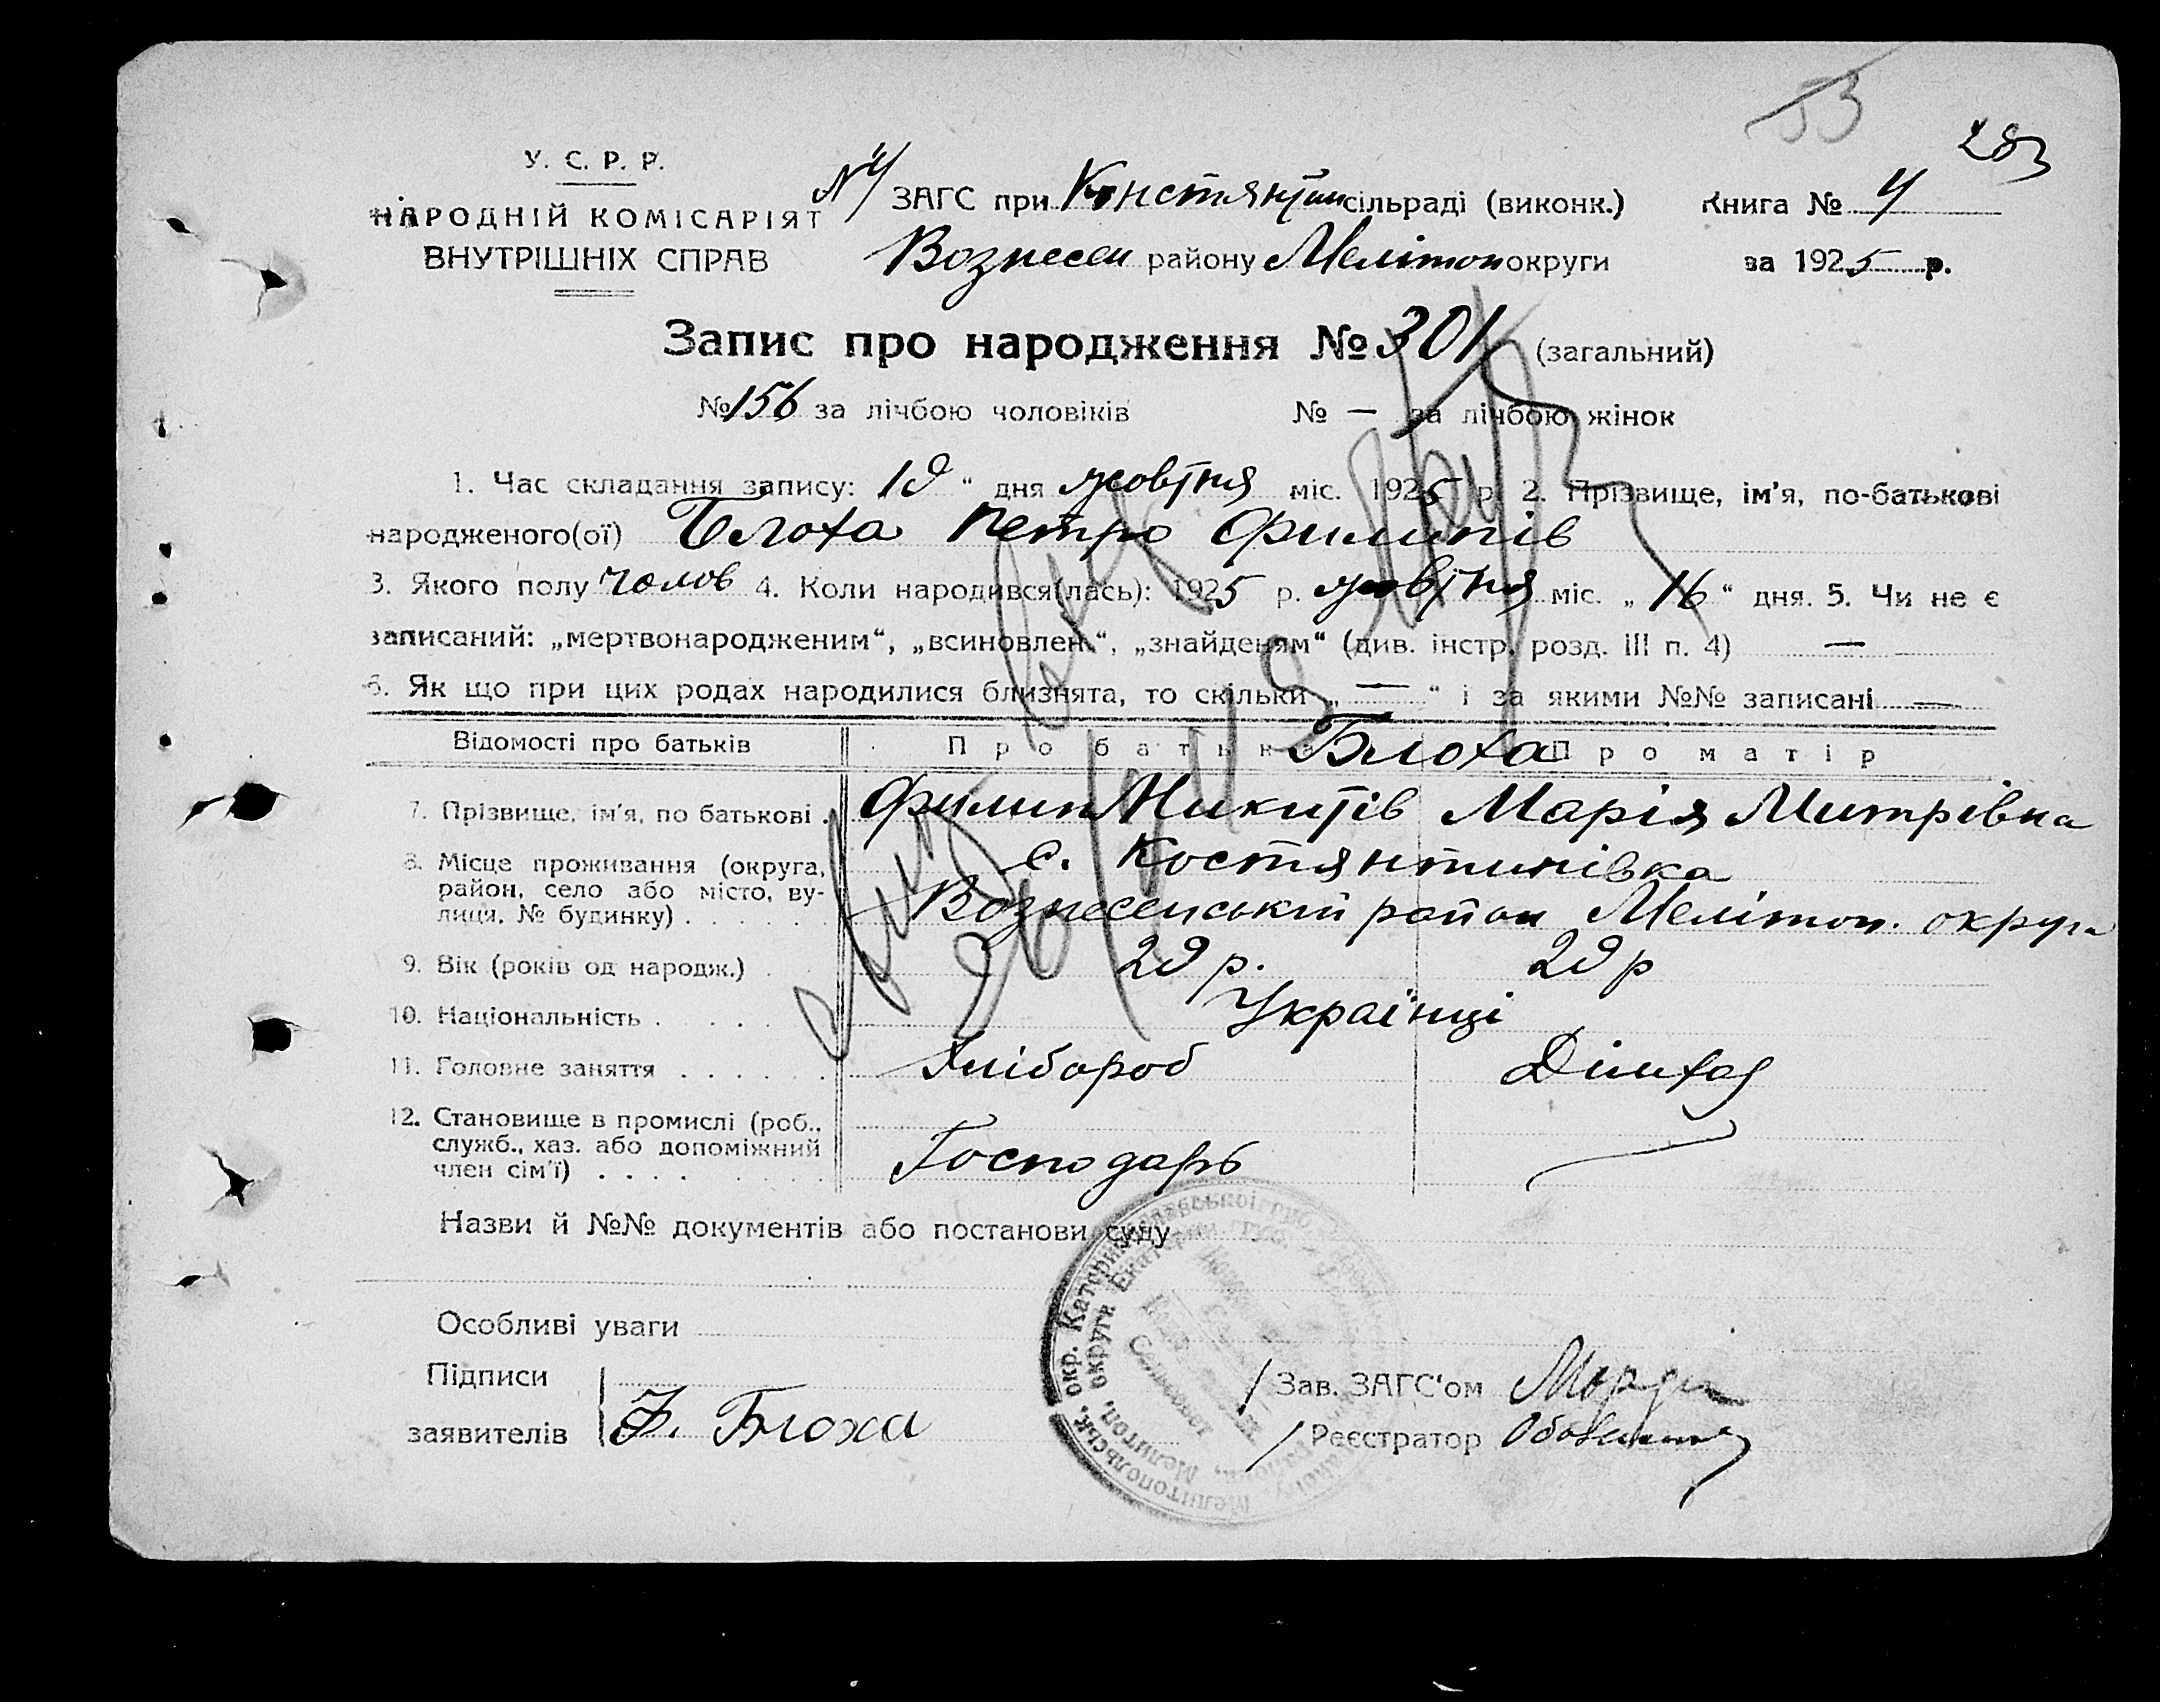 53
283
У. С. Р. Р.
НАРОДНІЙ КОМІСАРІЯТ
ВНУТРІШНІХ СПРАВ
№ 4 ЗАГС при Констянтин сільраді (виконк.) Книга № 4
Вознесен району Мелітоп округи за 1925 р.
Запис про народження № 301 (загальний)
№ 156 за лічбою чоловіків № — за лічбою жінок
1. Час складання запису: 19 " дня жовтня міс. 1925 р. 2. Прізвище, ім'я, по-батькові
народженого(ої) Блоха Петро Филипів
3. Якого полу чолов 4. Коли народився(лась): 1925 р. жовтня міс. „ 16 " дня. 5. Чи не є
записаний: „мертвонародженим", „всиновлен.", „знайденям" (див. інстр. розд. III п. 4) —
6. Як що при цих родах народилися близнята, то скільки „ — " і за якими №№ записані —
Відомості про батьків Про батька Блоха Про матір
7. Прізвище, ім'я, по батькові . Филип Микитів Марія Митрівна
8. Місце проживання (округа, с. Костянтинівка
район, село або місто, ву- Вознесенський район Мелітоп. округи
лиця, № будинку) . . . .
9. Вік (років од народж.) . 29 р. 29 р
10. Національність . . . . Українці
11. Головне заняття . . . . . . Хлібороб
12. Становище в промислі (роб.,
служб., хаз. або допоміжний Господарь
член сім'ї) . . . .
Назви й №№ документів або постанови суду
Особливі уваги
Підписи
заявителів Ф. Блоха
Зав. ЗАГС'ом
Реєстратор